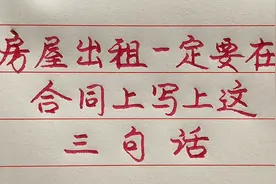 房屋出租一定要在
合同上写上这
三句话